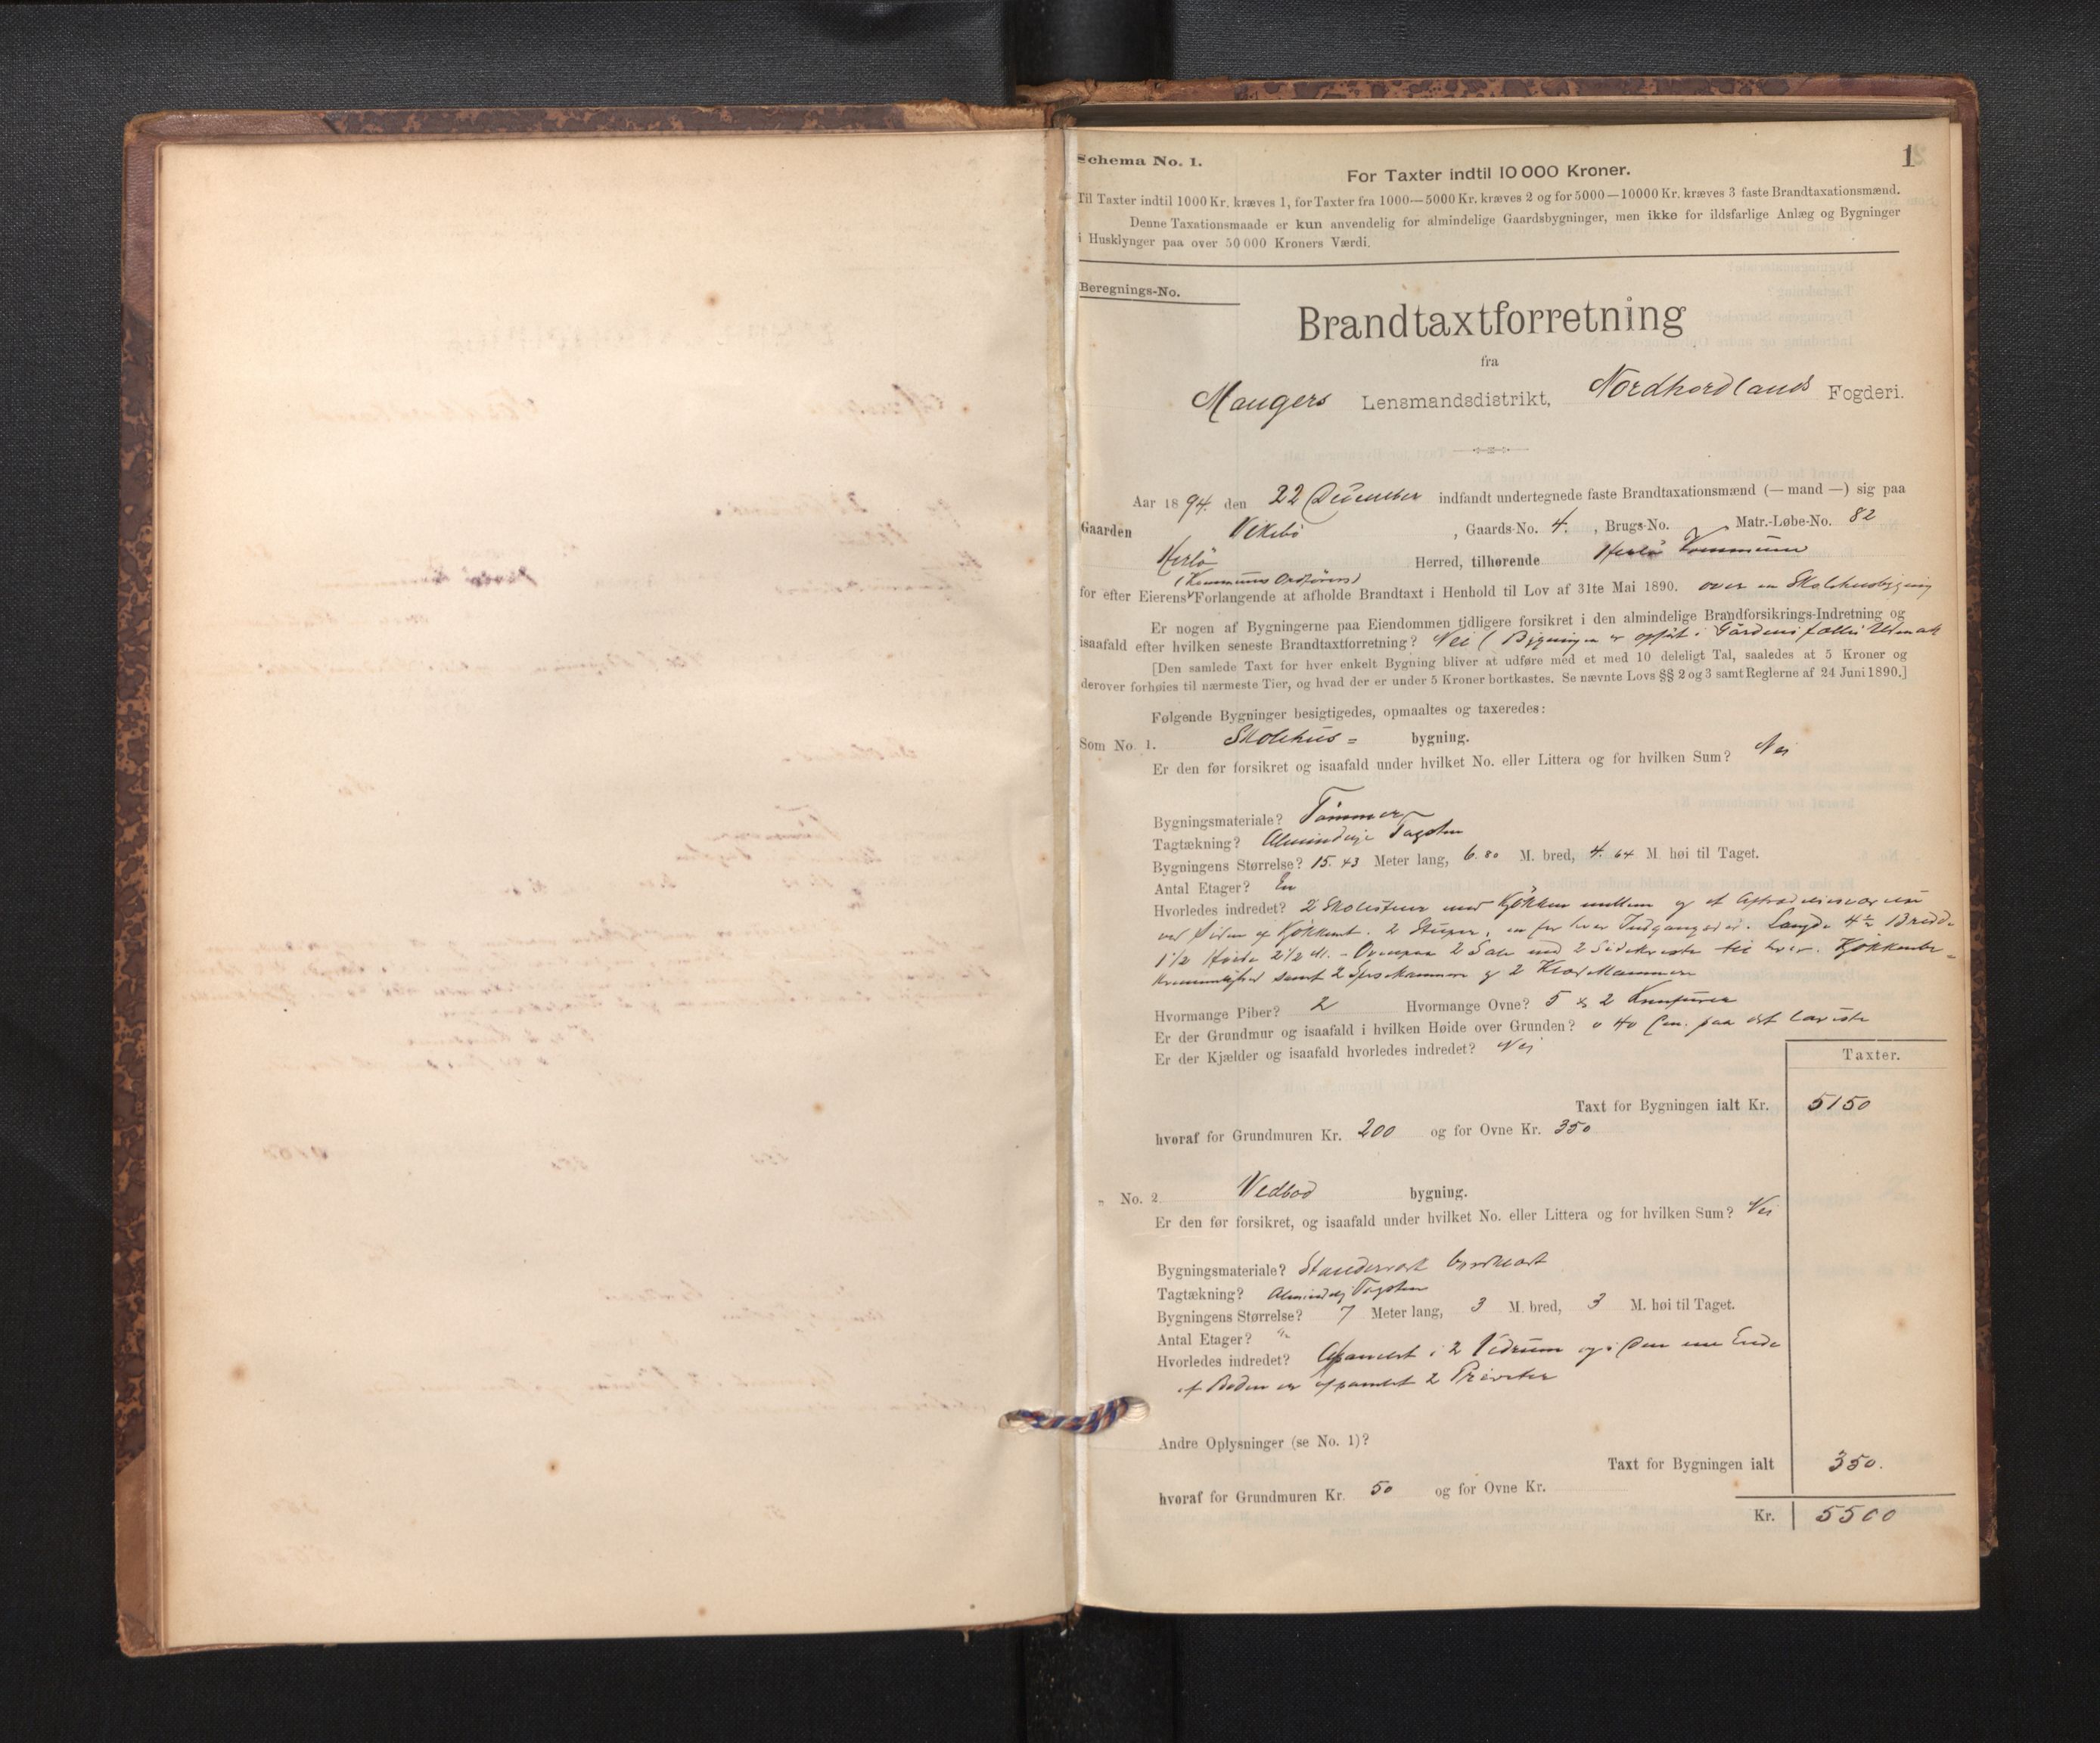 1
Schema No. 1.
For Taxter indtil 10 000 Kroner.
Til Taxter indtil 1000 Kr. kræves 1, for Taxter fra 1000—5000 Kr. kræves 2 og for 5000—10000 Kr. kræves 3 faste Brandtaxationsmænd.
Denne Taxationsmaade er kun anvendelig for almindelige Gaardsbygninger, men ikke for ildsfarlige Anlæg og Bygninger
i Husklynger paa over 50 000 Kroners Værdi.
Beregnings-No.
Brandtaxtforretning
fra
Maugers Lensmandsdistrikt, Nordhordlands Fogderi.
Aar 1894. den 22 December indfandt undertegnede faste Brandtaxationsmænd (— mand —) sig paa
Gaarden Vikebö, Gaards-No. 4., Brugs-No. Matr.-Løbe-No. 82
Herlö Herred, tilhørende Herlö Kommune
(Kommuns Ordförers)
for efter Eierens Forlangende at afholde Brandtaxt i Henhold til Lov af 31te Mai 1890. over en Skolehusbygning
Er nogen af Bygningerne paa Eiendommen tidligere forsikret i den almindelige Brandforsikrings-Indretning og
isaafald efter hvilken seneste Brandtaxtforretning? Nei (Bygningen er opført i Gårdens fælles Udmark
[Den samlede Taxt for hver enkelt Bygning bliver at udføre med et med 10 deleligt Tal, saaledes at 5 Kroner og
derover forhøies til nærmeste Tier, og hvad der er under 5 Kroner bortkastes. Se nævnte Lovs §§ 2 og 3 samt Reglerne af 24 Juni 1890.]
Følgende Bygninger besigtigedes, opmaaltes og taxeredes:
Som No. 1. Skolehus= bygning.
Er den før forsikret og isaafald under hvilket No. eller Littera og for hvilken Sum? Nei
Bygningsmateriale? Tömmer
Tagtækning? Almindelig Tagsten
Bygningens Størrelse? 15.43 Meter lang, 6.80 M. bred, 4.64 M. høi til Taget.
Antal Etager? En
Hvorledes indredet? 2 Skolestuer med Kjökken mellem og et
ved Siden af Kjökkenet. 2 , en for hver Indgangsdör. Længde 4½ Bredde
1½ Höide 2½ M. - Ovenpaa 2 Sale med 2 til hver.
samt 2 Spisekammere og 2 Klædekammere
Hvormange Piber? 2 Hvormange Ovne? 5 & 2 Komfurer
Er der Grundmur og isaafald i hvilken Høide over Grunden? 0 40 Cm. paa det laveste
Er der Kjælder og isaafald hvorledes indredet? Nei
Taxter.
Taxt for Bygningen ialt Kr. 5150
hvoraf for Grundmuren Kr. 200 og for Ovne Kr. 350
„ No. 2. Vedbod bygning.
Er den før forsikret, og isaafald under hvilket No. eller Littera og for hvilken Sum? Nei
Bygningsmateriale? Standerværk bordklædt
Tagtækning? Almindelig Tagsten
Bygningens Størrelse? 7 Meter lang, 3 M. bred, 3 M. høi til Taget.
Antal Etager?
Hvorledes indredet? Afpanelet i 2 Vedrum og i den ene Ende
af Boden er afpanelet 2 Priveter
Andre Oplysninger (se No. 1)?
Taxt for Bygningen ialt 350.
hvoraf for Grundmuren Kr. 50 og for Ovne Kr.
Kr. 5500